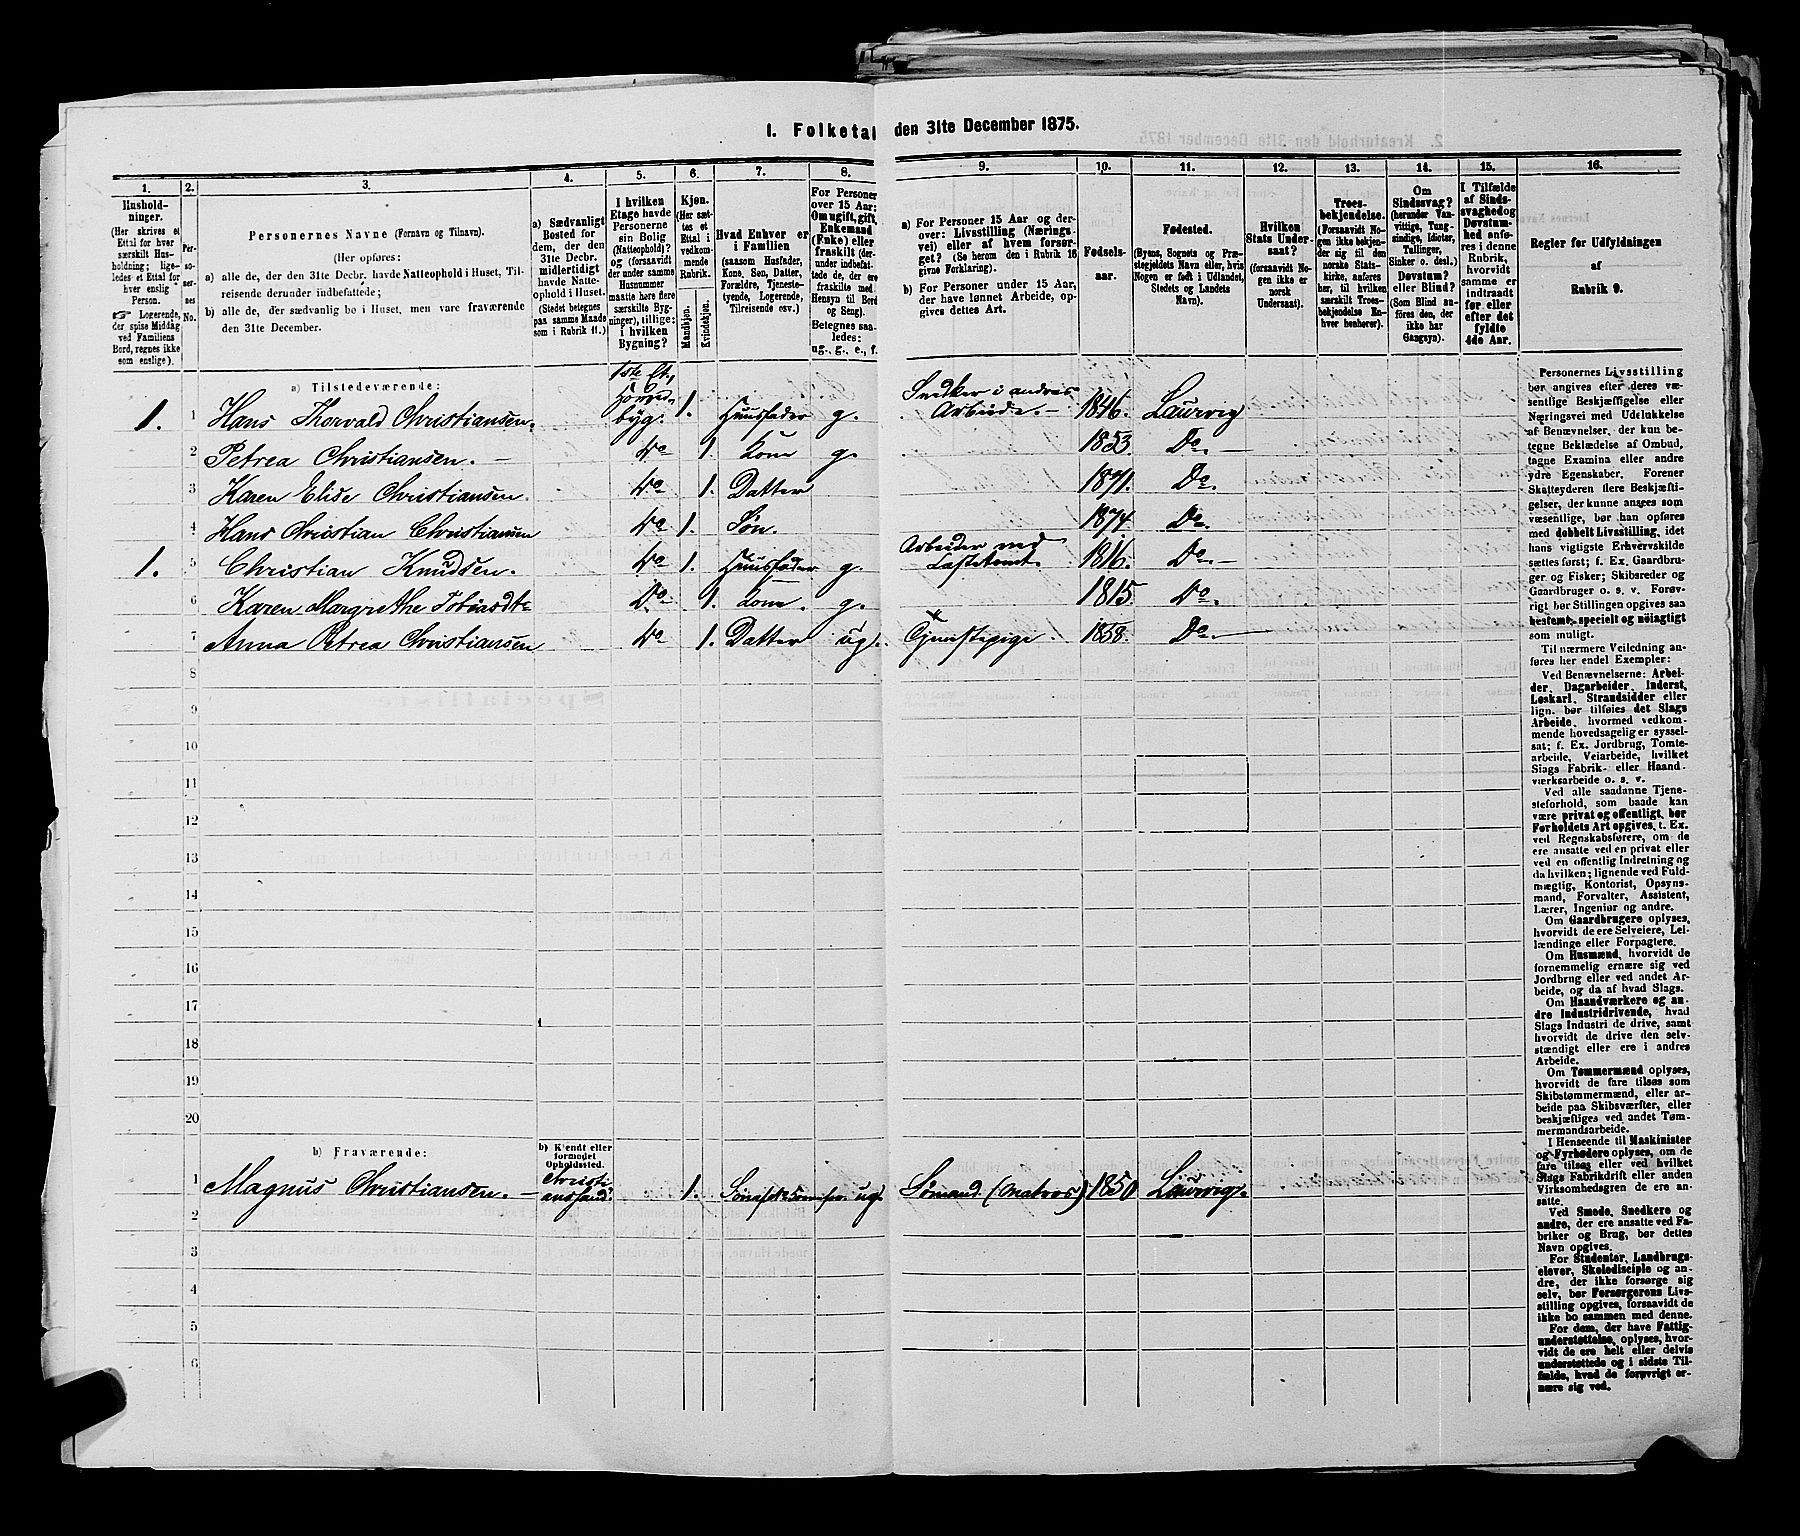 1. Folketal den 31te December 1875.
1. 2. 3. 4. 5. 6. 7. 8. 9. 10. 11. 12. 13. 14. 15. 16.
Husholdninger.
(Her skrives et
Ettal for hver
særskilt Husholdning;
ligeledes et Ettal for
hver enslig
Person.
☞ Logerende,
der spise Middag
ved Familiens
Bord, regnes ikke
som enslige).
Personernes No.
Personernes Navne (Fornavn og Tilnavn).
(Her opføres:
a) alle de, der den 31te Decbr. havde Natteophold i Huset, Tilreisende derunder indbefattede;
b) alle de, der sædvanlig bo i Huset, men vare fraværende
den 31te December.
a) Sædvanligt
Bosted for
dem, der den
31te Decbr.
midlertidigt
havde Natteophold
i Huset.
(Stedet betegnes
paa samme Maade
som i Rubrik 11.)
I hvilken
Etage havde
Personerne
sin Bolig
(Natteophold)?
og (forsaavidt
der under samme
Husnummer
maatte høre flere
særskilte Bygninger),
tillige:
i hvilken
Bygning?
Kjøn.
(Her sættes
et
Ettal i
vedkommende
Rubrik.
Mandkjøn.
Kvindekjøn.
Hvad Enhver er
i Familien
(saasom Husfader,
Kone, Søn, Datter,
Forældre, Tjenestetyende,
Logerende,
Tilreisende osv.)
For Personer
over 15 Aar:
Om ugift, gift,
Enkemand
(Enke) eller
fraskilt (derunder
indbefattede
de, der ere
fraskilte med
Hensyn til Bord
og Seng).
Betegnes saaledes:
ug., g., e., f.
a) For Personer 15 Aar og derover:
Livsstilling (Næringsvei)
eller af hvem forsørget?
(Se herom den i Rubrik 16
givne Forklaring).
b) For Personer under 15 Aar,
der have lønnet Arbeide, opgives
dettes Art.
Fødselsaar.
Fødested.
(Byens, Sognets og Præstegjeldets
Navn eller, hvis
Nogen er født i Udlandet,
Stedets og Landets
Navn).
Hvilken
Stats Undersaat?
(forsaavidt Nogen
ikke er
norsk
Undersaat).
Troesbekjendelse.
(Forsaavidt Nogen
ikke bekjender
sig til den
norske Statskirke,
anføres
her, til hvilken
særskilt Troesbekjendelse
Enhver
henhører).
Om
Sindssvag?
(herunder Vanvittige,
Tungsindige,
Idioter,
Tullinger,
Sinker o. desl.)
Døvstum?
eller Blind?
(Som Blind anføres
den, der
ikke har
Gangsyn).
I Tilfælde
af Sindssvaghed
og
Døvstumhed
anføres
i denne
Rubrik,
hvorvidt
samme er
indtraadt
før eller
efter det
fyldte
4de Aar.
Regler for Udfyldningen
af
Rubrik 9.
a) Tilstedeværende:
1. 1 Hans Thorvald Christiansen. 1ste Et., Forredbyg. 1. Huusfader g. Snedker i andres Arbeide. 1846. Laurvig
2 Petrea Christiansen. Do 1. Kone g. 1853 Do.
3 Karen Elise Christiansen. Do 1. Datter 1871. Do.
4 Hans Christian Christiansen Do 1. Søn. 1874. Do.
1. 5 Christian Knudsen. Do 1. Huusfader g. Arbeider ved Lastetomt. 1816. Do.
6 Karen Margrethe Tobiasdtr Do. 1. Kone. g. 1815. Do.
7 Anna Petrea Christiansen Do 1. Datter ug. Tjenestepige. 1858. Do.
8
9
10
11
12
13
14
15
16
17
18
19
20
b) Fraværende:
b) Kjendt eller
formodet
Opholdssted.
1 Magnus Christiansen. Christiansand 1. ug. Sømand (Matros) 1850 Laurvig.
2
3
4
5
6
Personernes Livsstilling
bør angives efter deres væsentlige
Beskjæftigelse eller
Næringsvei med Udelukkelse
af Benævnelser, der kun betegne
Beklædelse af Ombud,
tagne Examina eller andre
ydre Egenskaber. Forener
Skatteyderen flere Beskjæftigelser,
der kunne anges som
væsentlige, bør han opføres
med dobbelt Livsstilling, idet
hans vigtigste Erhvervskilde
sættes først; f. Ex. Gaardbruger
og Fisker; Skibsreder og
Gaardbruger o. s. v. Forøvrigt
bør Stillingen opgives saa
bestemt, specielt og nöiagtigt
som muligt.
Til nærmere Veiledning anføres
her endel Exempler:
Ved Benævnelserne: Arbeider,
Dagarbeider, Inderst,
Løskarl, Strandsidder eller
lign. bør tilføies det Slags
Arbeide, hvormed vedkommende
hovedsagelig er sysselsat;
f. Ex. Jordbrug, Tomtearbeide,
Veiarbeide, hvilket
Slags Fabrik- eller Haandværksarbeide
o. s. v.
Ved alle saadanne Tjenesteforhold,
som baade kan
være privat og offentligt, bør
Forholdets Art opgives, t. Ex.
ved Regnskabsførere, om de
ere ansatte ved en privat eller
ved en offentlig Indretning og
da hvilken; lignende ved Fuldmægtig,
Kontorist, Opsynsmand,
Forvalter, Assistent,
Lærer, Ingeniør og andre.
Om Gaardbrugere oplyses,
hvorvidt de ere Selveiere, Leilændinge
eller Forpagtere.
Om Husmænd, hvorvidt de
fornemmelig ernære sig ved
Jordbrug eller ved andet Arbeide,
og da af hvad Slags.
Om Haandværkere og andre
Industridrivende, hvad
Slags Industri de drive, samt
hvorvidt de drive den selvstændigt
eller ere i andres
Arbeide.
Om Tømmermænd oplyses,
hvorvidt de fare tilsøs som
Skibstømmermænd, eller arbeide
paa Skibsværfter, eller
beskjæftiges ved andet Tømmermandsarbeide.
I Henseende til Maskinister
og Fyrbødere oplyses, om de
fare tilsøs eller ved hvilket
Slags Fabrikdrift eller anden
Virksomhedsgren de ere ansatte.
Ved Smede, Snedkere og
andre, der ere ansatte ved Fabriker
og Brug, bør dettes
Navn opgives.
For Studenter, Landbrugselever,
Skoledisciple og andre,
der ikke forsørge sig
selv, bør Forsørgerens Livsstilling
opgives, forsaavidt de
ikke bo sammen med denne.
For dem, der have Fattigunderstøttelse,
oplyses, hvorvidt
de ere helt eller delvis
understøttede og i sidste Tilfælde,
hvad de forøvrigt ernære
sig ved.